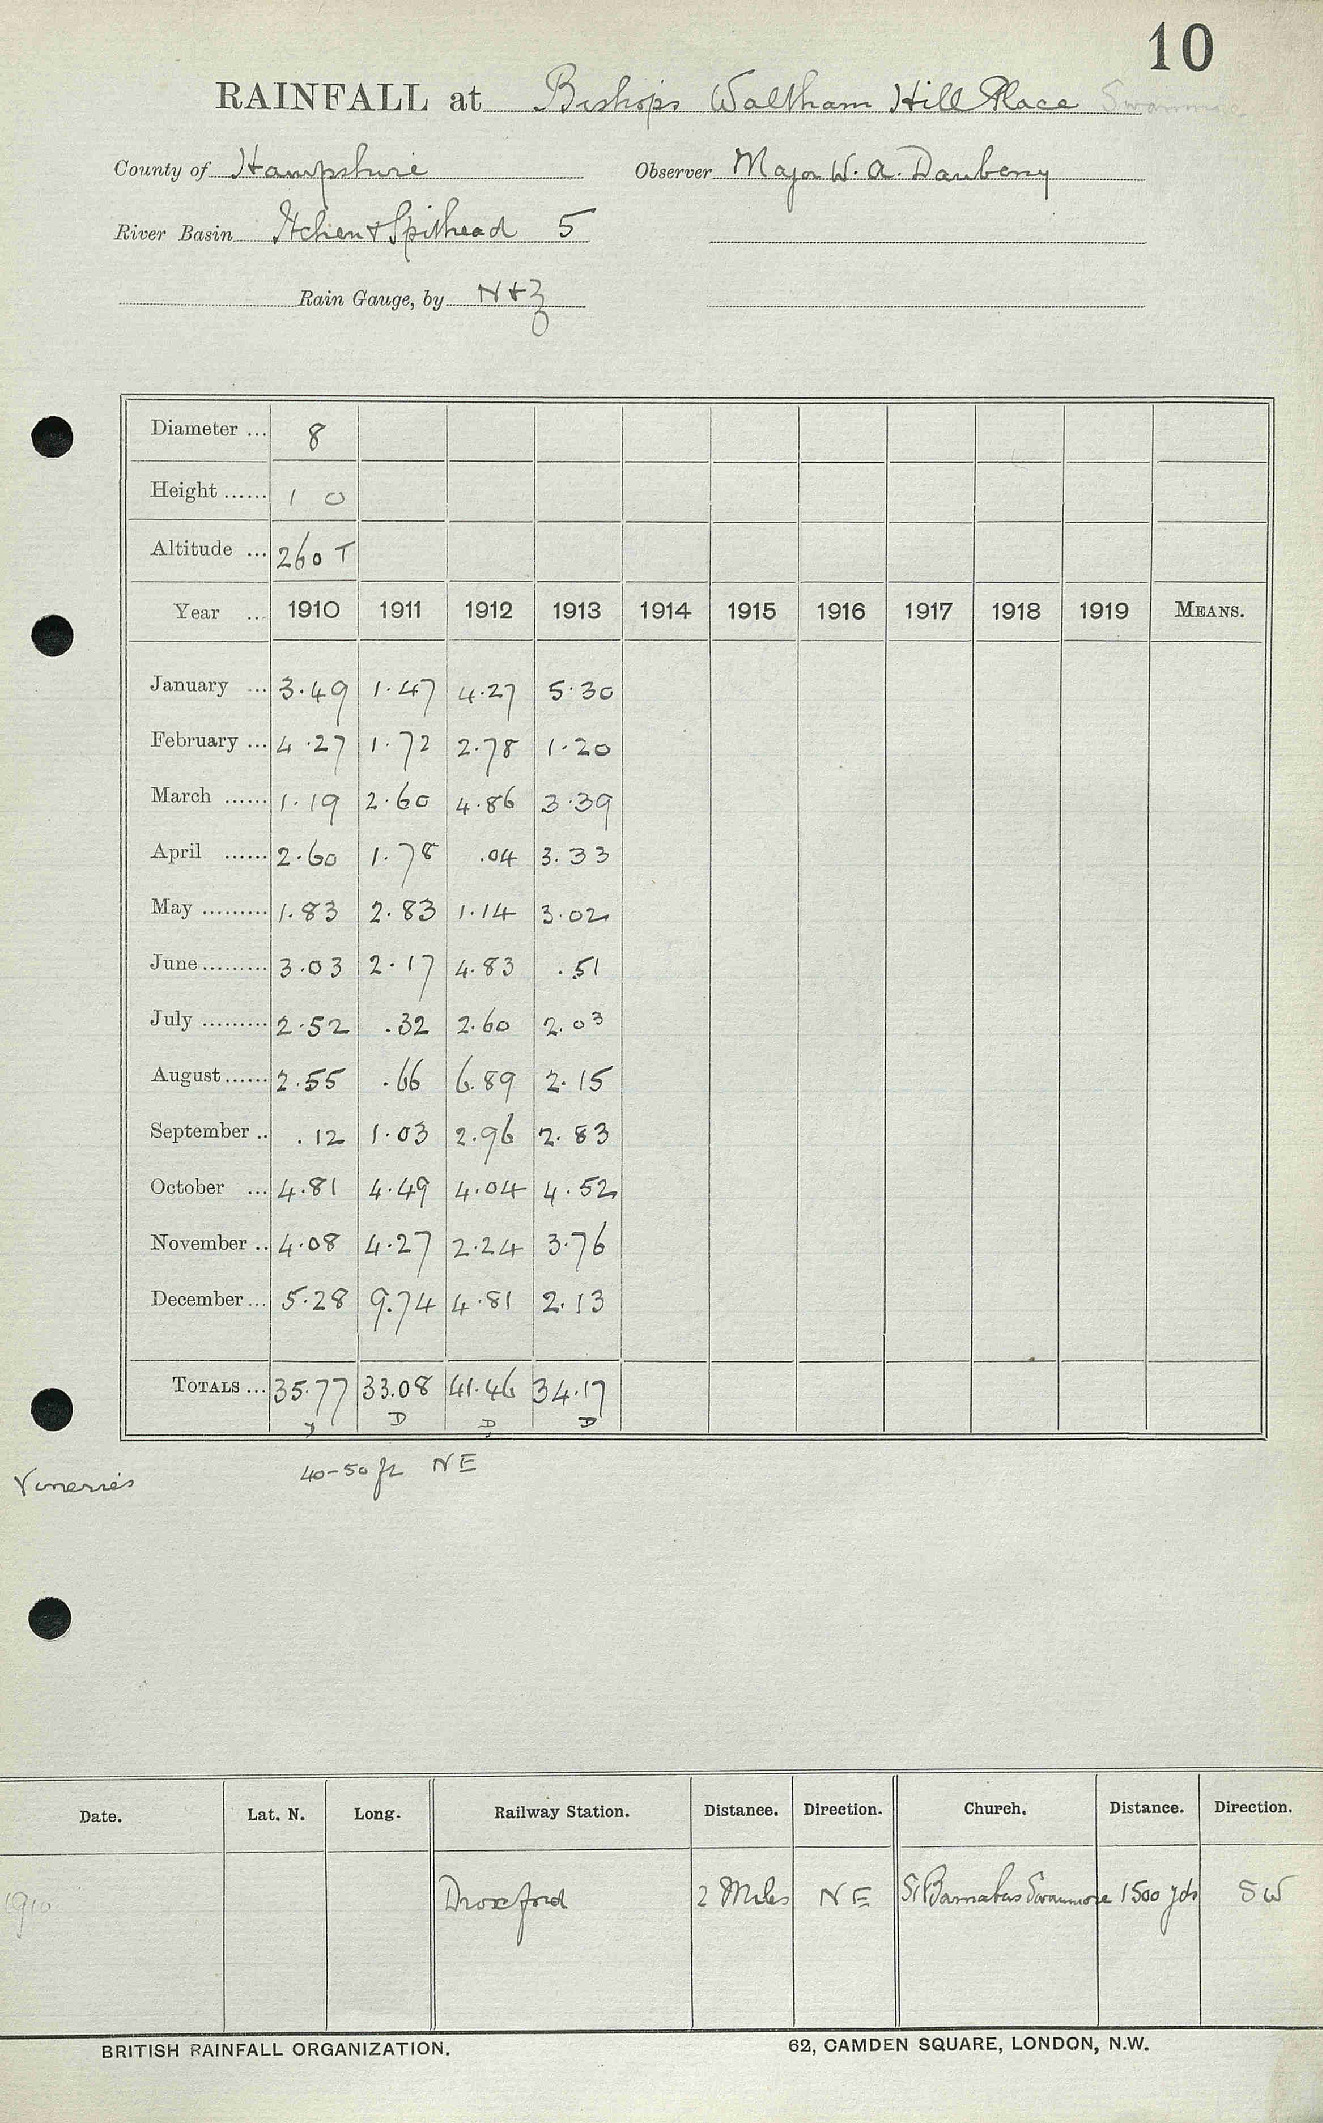 10
RAINFALL at Bishops Waltham Hill Place
County of Hampshire Observer Major W. A. Daubeny
River Basin Itchen & Spithead 5
Rain Gauge, by N & Z
Diameter ... 8
Height ...... 1 0
Altitude ... 260 T
Year ... 1910 1911 1912 1913 1914 1915 1916 1917 1918 1919 MEANS.
January ... 3.49 1.47 4.27 5.30
February ... 4.27 1.72 2.78 1.20
March ...... 1.19 2.60 4.86 3.39
April ...... 2.60 1.78 .04 3.33
May ......... 1.83 2.83 1.14 3.02
June ......... 3.03 2.17 4.83 .51
July ......... 2.52 .32 2.60 2.03
August ...... 2.55 .66 6.89 2.15
September .. .12 1.03 2.96 2.83
October ... 4.81 4.49 4.04 4.52
November .. 4.08 4.27 2.24 3.76
December ... 5.28 9.74 4.81 2.13
TOTALS ... 35.77 33.08 41.46 34.17
D D D
Vineries 40-50 ft NE
Date. Lat. N. Long. Railway Station. Distance. Direction. Church. Distance. Direction.
1910 Droxford 2 Miles NE St Barnabas Swanmore 1500 yds SW
BRITISH RAINFALL ORGANIZATION. 62, CAMDEN SQUARE, LONDON, N.W.